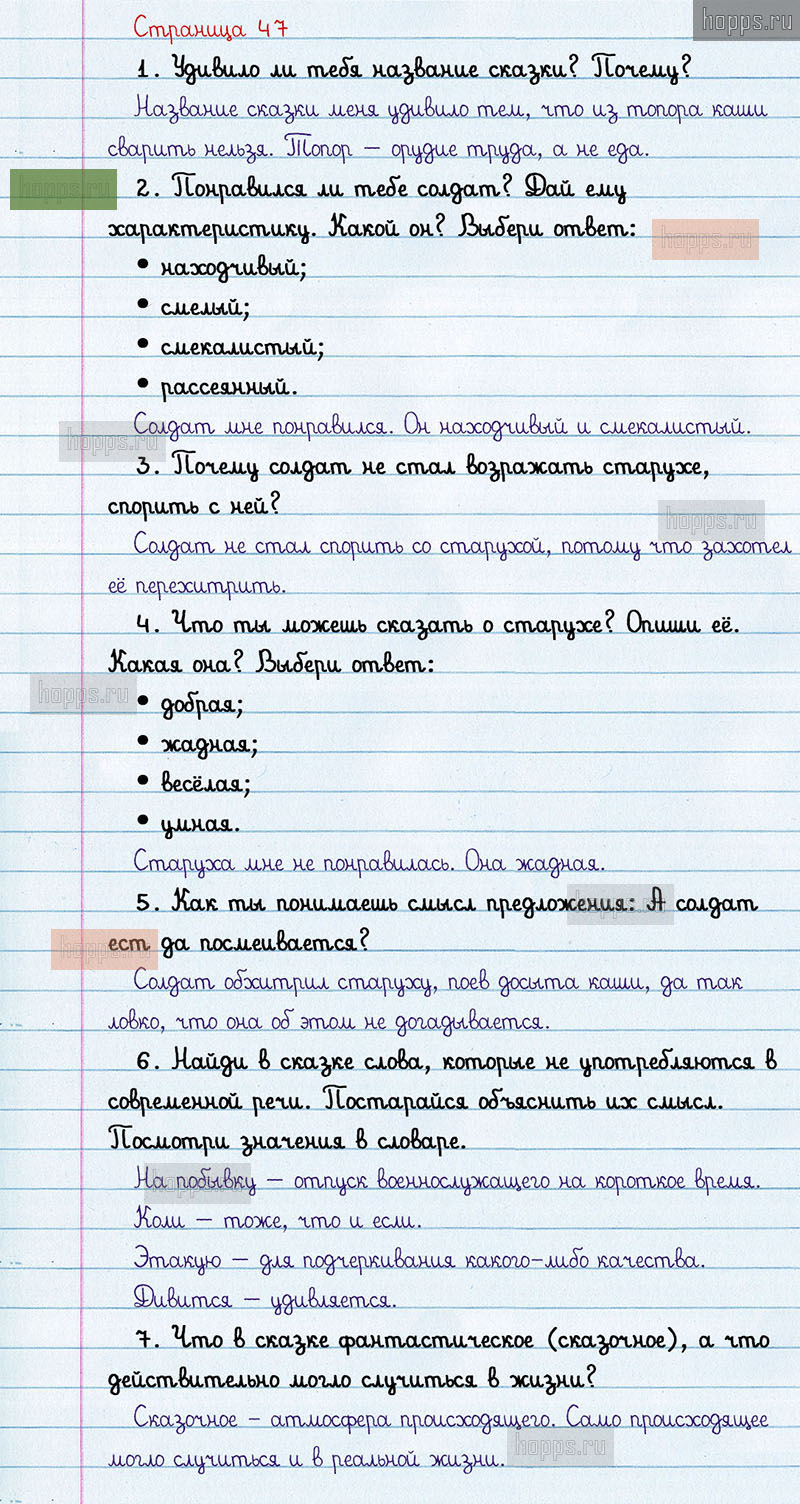 hopps.ru
Страница 47
1. Удивило ли тебя название сказки? Почему?
Название сказки меня удивило тем, что из топора каши
сварить нельзя. Топор – орудие труда, а не еда.
hopps.ru
2. Понравился ли тебе солдат? Дай ему
характеристику. Какой он? Выбери ответ:
hopps.ru
• находчивый;
• смелый;
• смекалистый;
• рассеянный.
Солдат мне понравился. Он находчивый и смекалистый.
hopps.ru
3. Почему солдат не стал возражать старухе,
спорить с ней?
hopps.ru
Солдат не стал спорить со старухой, потому что захотел
её перехитрить.
4. Что ты можешь сказать о старухе? Опиши её.
Какая она? Выбери ответ:
hopps.ru
• добрая;
• жадная;
• весёлая;
• умная.
Старуха мне не понравилась. Она жадная.
5. Как ты понимаешь смысл предложения: А солдат
hopps.ru
ест да посмеивается?
hopps.ru
Солдат обхитрил старуху, поев досыта каши, да так
ловко, что она об этом не догадывается.
6. Найди в сказке слова, которые не употребляются в
современной речи. Постарайся объяснить их смысл.
Посмотри значения в словаре.
На побывку – отпуск военнослужащего на короткое время.
hopps.ru
Коли – тоже, что и если.
Этакую – для подчеркивания какого-либо качества.
Дивится – удивляется.
7. Что в сказке фантастическое (сказочное), а что
действительно могло случиться в жизни?
Сказочное – атмосфера происходящего. Само происходящее
могло случиться и в реальной жизни.
hopps.ru